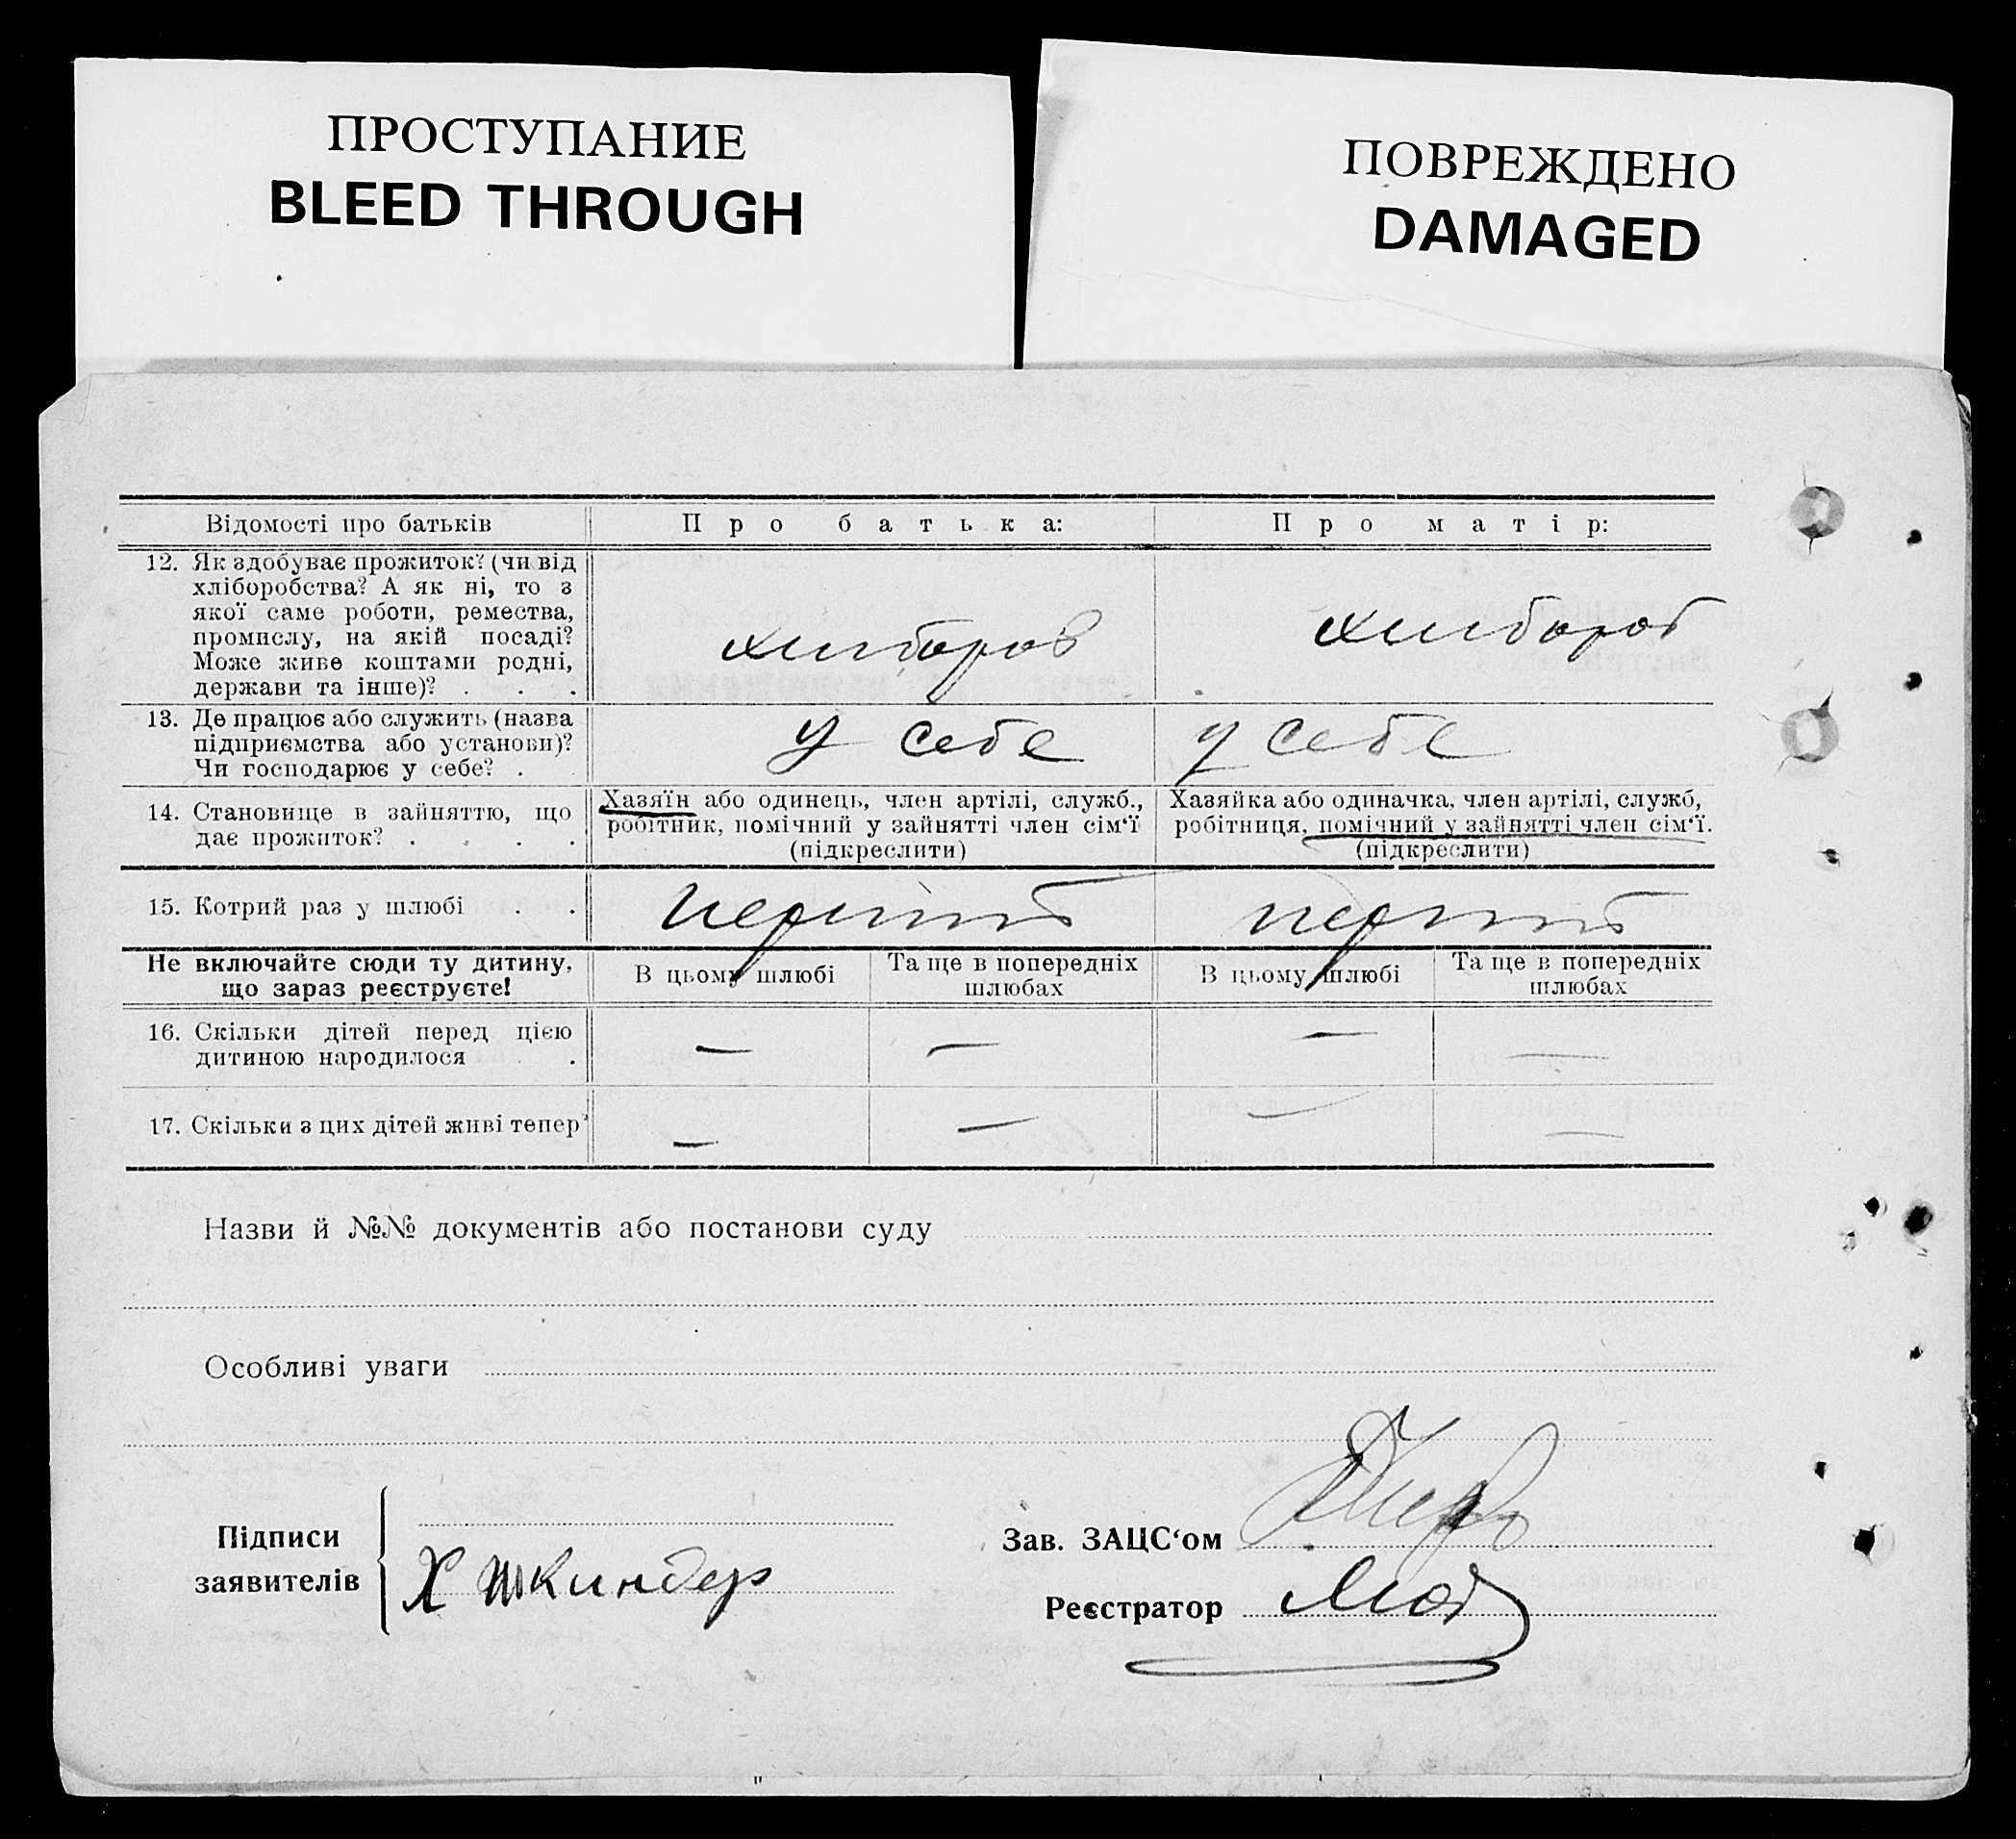 ПРОСТУПАНИЕ
BLEED THROUGH
ПОВРЕЖДЕНО
DAMAGED
Відомості про батьків
Про батька:
Про матір:
12. Як здобуває прожиток? (чи від
хліборобства? А як ні, то з
якої саме роботи, ремества,
промислу, на якій посаді?
Може живе коштами родні,
держави та інше)? . . .
хлибороб
хлибороб
13. Де працює або служить (назва
підприємства або установи)?
Чи господарює у себе? .
у себе
у себе
14. Становище в зайняттю, що
дає прожиток? . . . .
Хазяїн або одинець, член артілі, служб.,
робітник, помічний у зайнятті член сім‘ї
(підкреслити)
Хазяйка або одиначка, член артілі, служб,
робітниця, помічний у зайнятті член сім‘ї.
(підкреслити)
15. Котрий раз у шлюбі . .
Не включайте сюди ту дитину,
що зараз реєструєте!
В цьому шлюбі
Та ще в попередніх
шлюбах
В цьому шлюбі
Та ще в попередніх
шлюбах
16. Скільки дітей перед цією
дитиною народилося .
— — — —
17. Скільки з цих дітей живі тепер?
— — — —
Назви й №№ документів або постанови суду
Особливі уваги
Підписи
заявителів
Х Шкиндер
Зав. ЗАЦС‘ом
Реєстратор